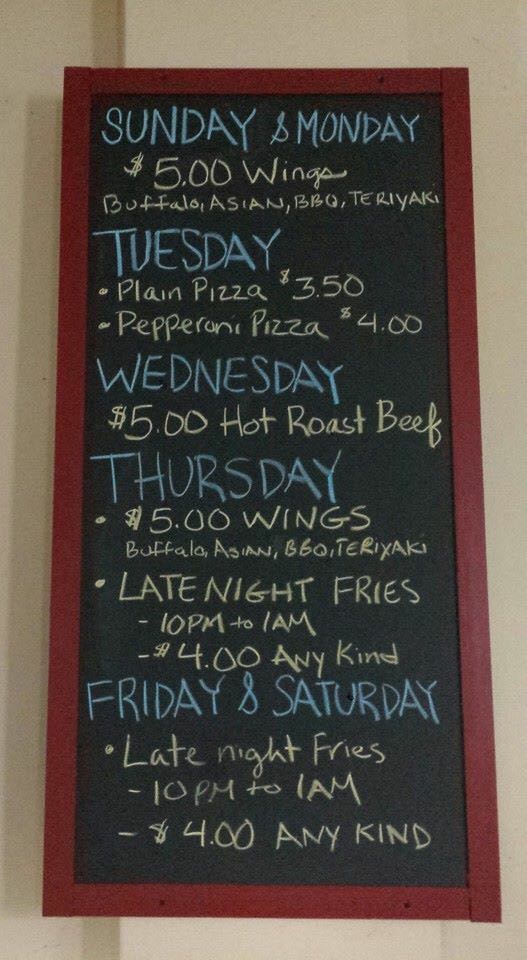 SUNDAY & MONDAY
$5.00 Wings
Buffalo, ASIAN, BBQ, TERIYAKI
TUESDAY
• Plain Pizza $3.50
• Pepperoni Pizza $4.00
WEDNESDAY
$5.00 Hot Roast Beef
THURSDAY
• $5.00 WINGS
Buffalo, ASIAN, BBQ, TERIYAKI
• LATE NIGHT FRIES
- 10PM to 1AM
- $4.00 ANY Kind
FRIDAY & SATURDAY
• Late night Fries
- 10PM to 1AM
- $4.00 ANY KIND